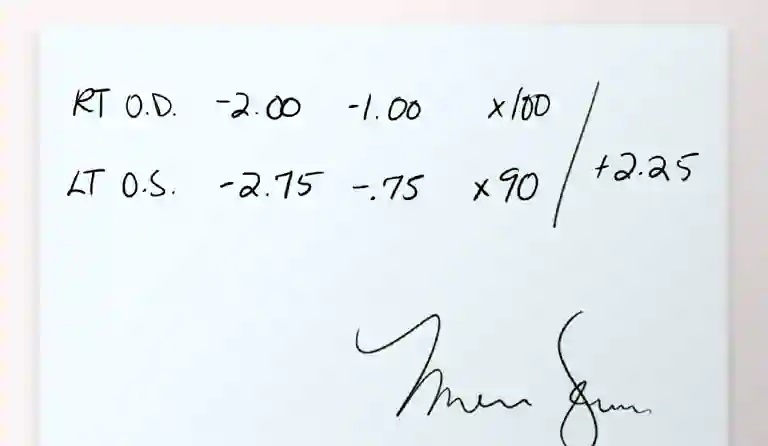 RT O.D. -2.00 -1.00 x100
LT O.S. -2.75 -.75 x90 / +2.25